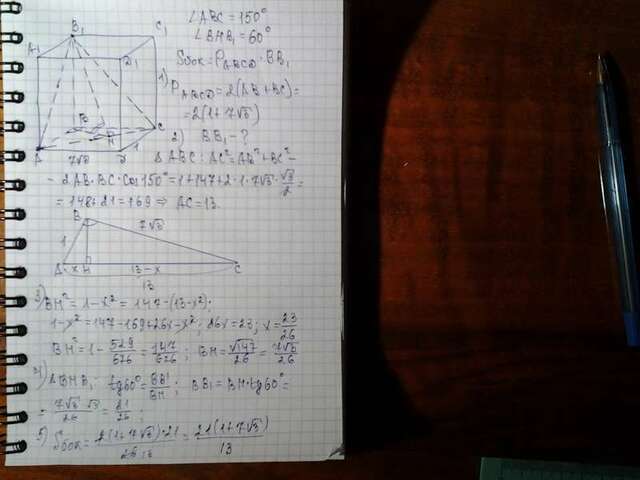 ∠ABC = 150°
∠BHB₁ = 60°
Sбок = P_ABCD · BB₁
1) P_ABCD = 2(AB + BC) =
= 2(1 + 7√3)
2) BB₁ - ?
B₁
C₁
A₁
D₁
B
C
H
A
7√3
D
1
Δ ABC : AC² = AB² + BC² -
- 2AB · BC · Cos 150° = 1 + 147 + 2 · 1 · 7√3 · √3/2 =
= 148 + 21 = 169 ⇒ AC = 13.
B
7√3
1
A x H 13 - x C
13
3) BH² = 1 - x² = 147 - (13 - x²);
1 - x² = 147 - 169 + 26x - x²; 26x = 23; x = 23/26
BH² = 1 - 529/676 = 147/676; BH = √147/26 = 7√3/26
4) Δ BHB₁ : tg60° = BB₁/BH; BB₁ = BH · tg60° =
= 7√3 · √3/26 = 21/26;
5) Sбок = 2(1 + 7√3) · 21/26 13 = 21(1 + 7√3)/13